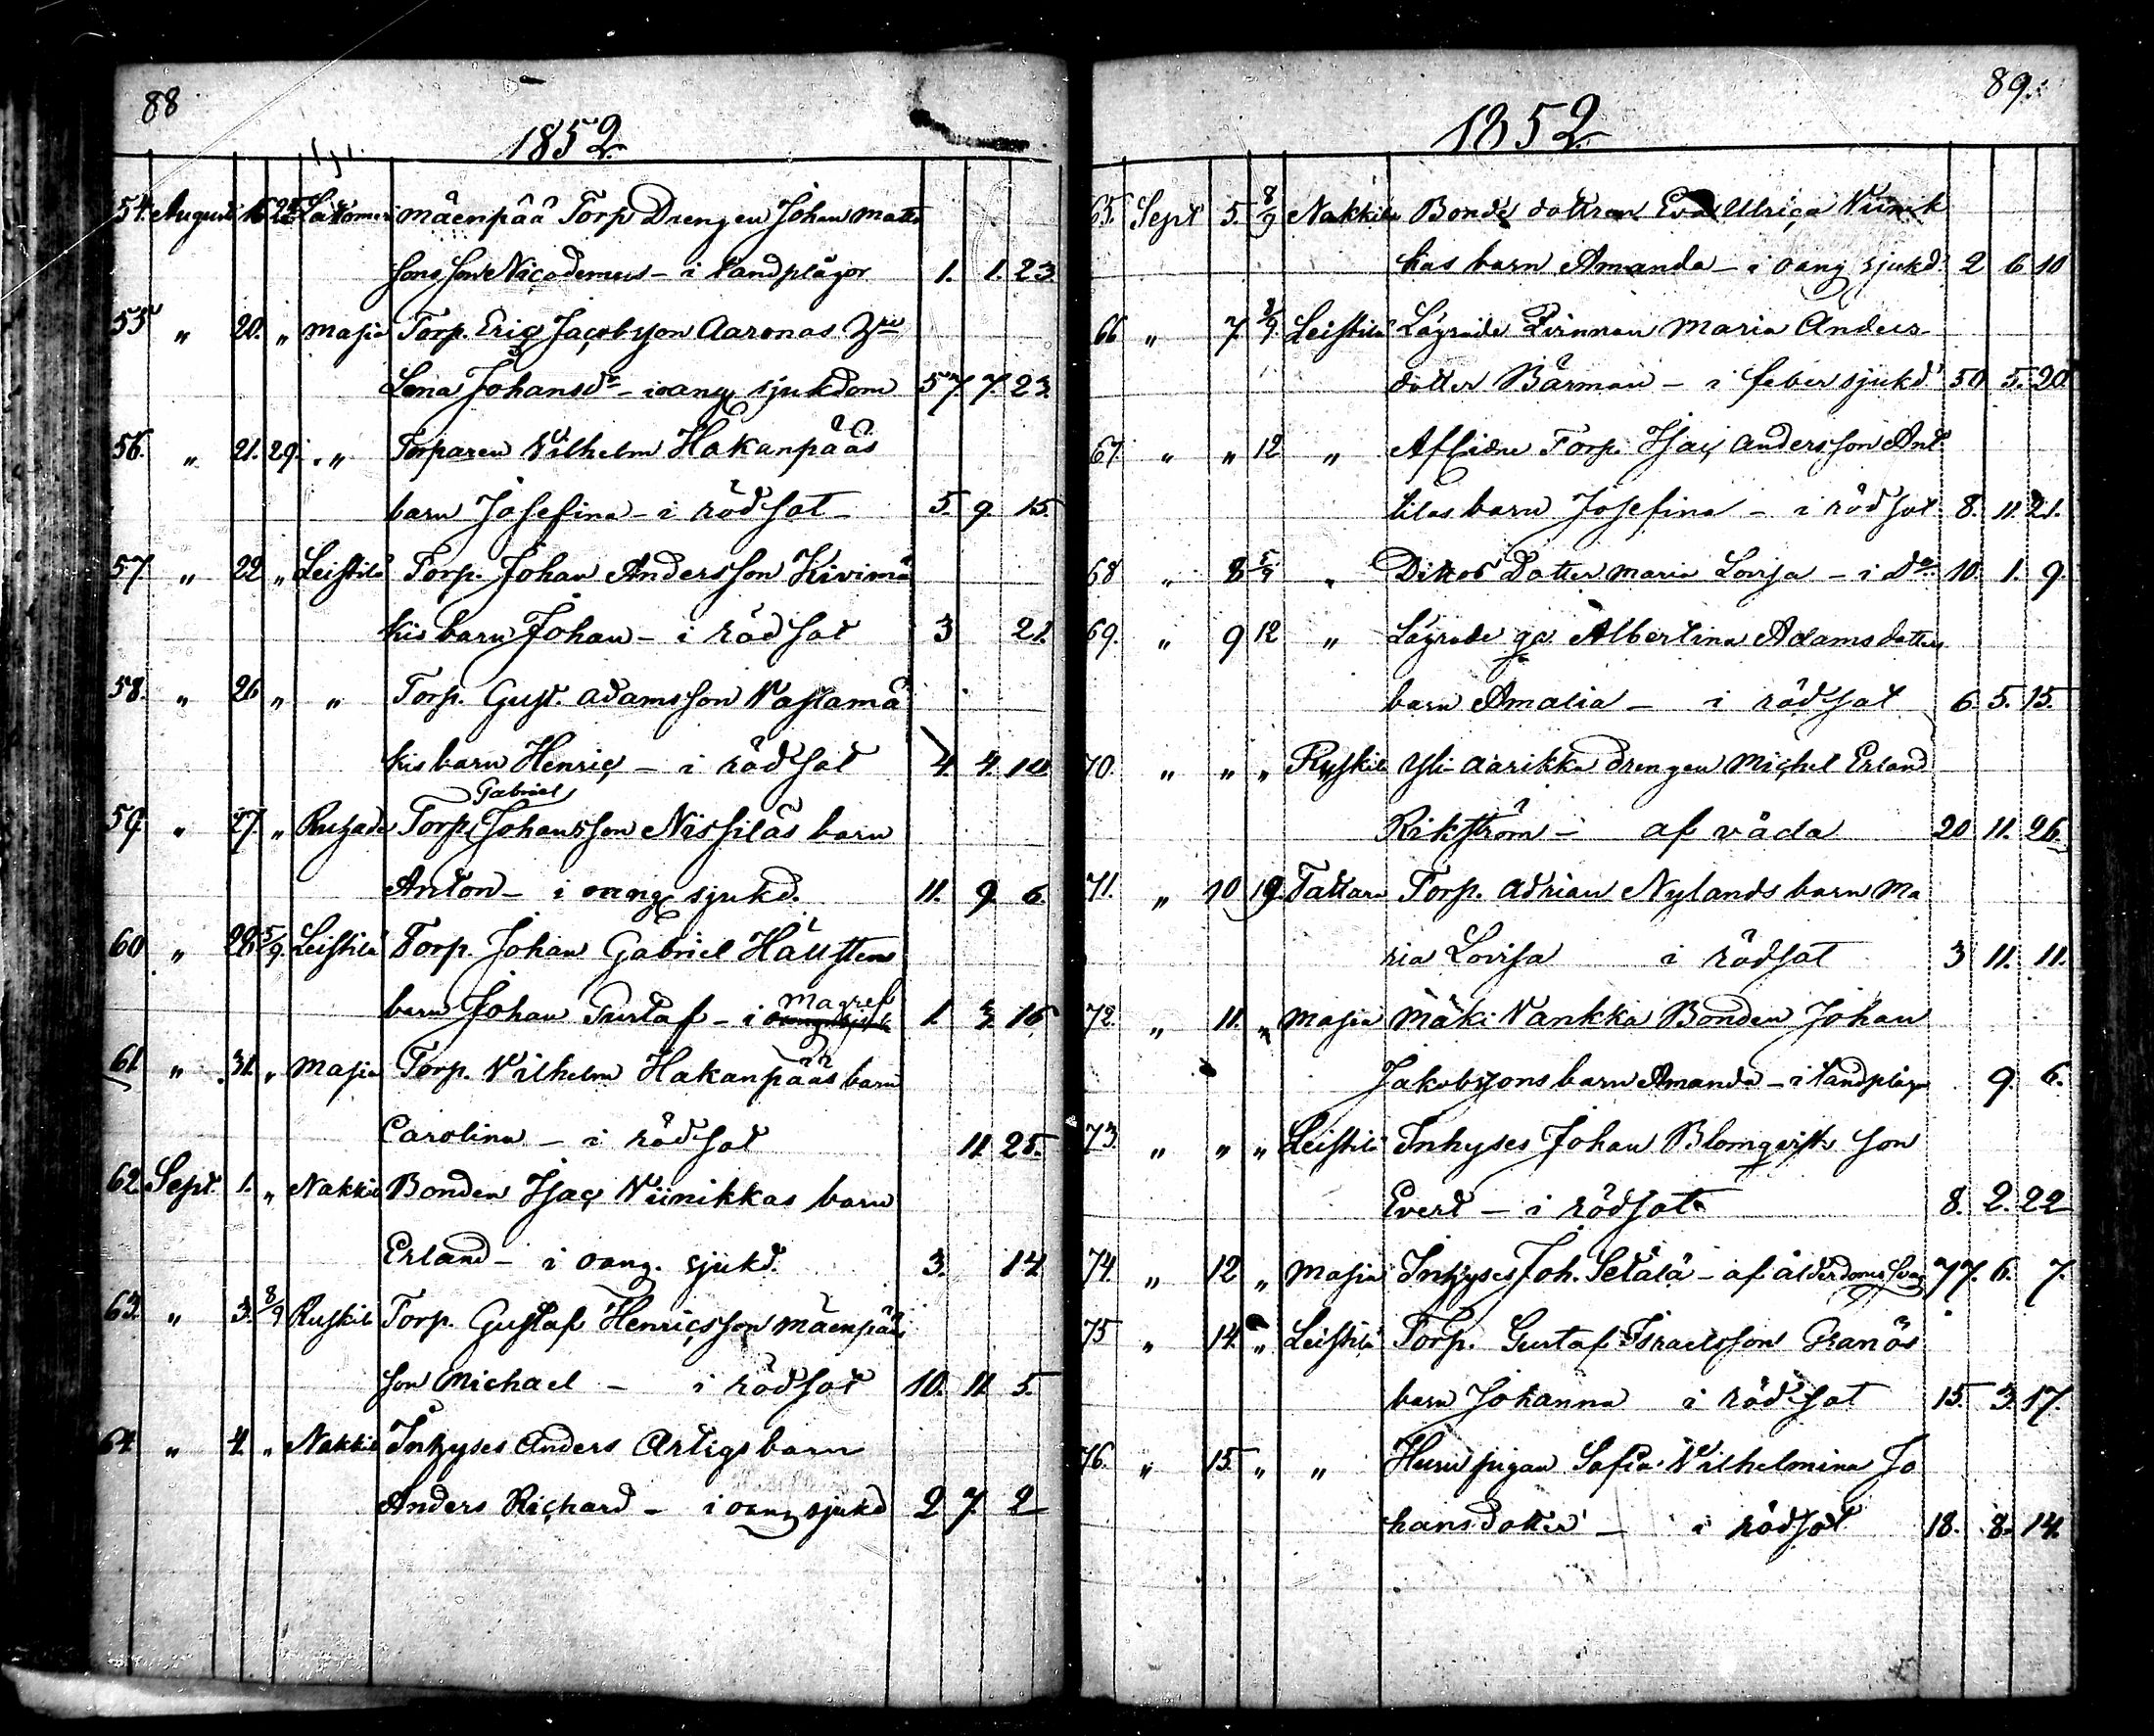 88
1852
54. Augusti 16 22 Lattomeri mäenpää Torp Drengen Johan Matts
sons son Nicodemus - i tandplågor 1. 1. 23.
55 " 20. " Masia Torp. Eric Jacobsson Aaronas
Lena Johansdr - i oang sjukdom 57. 7. 23.
56. " 21. 29. " Torparen Vilhelm Hakanpääs
barn Josefina - i rödsot - 5. 9. 15.
57 " 22 " Leistilä Torp. Johan Andersson Kivimä
kis barn Johan - i rödsot 3 21.
58. " 26 " " Torp. Gust. Adamsson Vastamä
kis barn Henric - i rödsot 4. 4. 10
Gabriel
59. " 27. " Torp. Johansson Nissiläs barn
Anton - i oang sjukd. 11. 9. 6.
60 " 28 5/9. Leistilä Torp. Johan Gabriel Hällstens
magref
barn Johan Gustaf - i 1. 3. 16
61. " 31. " Masia Torp. Vilhelm Hakanpääs barn
Carolina - i rödsot 11 25.
62. Sept. 1. " Nakkila Bonden Isac Viinikkas barn
Erland - i oang. sjukd. 3. 14.
63. " 3. 8/9 Ruskila Torp. Gustaf Henricsson mäenpääs
son Michael - i rödsot 10. 11. 5.
64 " 4. " Nakkila Inhyses Anders Artigs barn
Anders Richard - i oang sjukd 2 7. 2
89.
1852
65. Sept 5. 8/9 Nakkila Bonde dottren Eva Ulrica Viinik
kas barn Amanda - i oang sjukd. 2 6 10
66 " 7. 8/9. Leistilä Lägrade Qvinnan Maria Anders
dotter Bärman - i feber sjukd 50 5. 20
67 " " 12 " Aflidne Torp. Isac Andersson Ant
tilas barn Josefina - i rödsot 8. 11. 21.
68 " 8 5/9 " Dittos Dotter Maria Lovisa - i do 10. 1. 9.
69. " 9 12 " Lägrade Albertina Adamsdotters
barn Amalia - i rödsot 6. 5. 15.
70. " " " Ruskila Yli-Aarikka drengen Michel Erland
Rikström - af våda 20 11. 26.
71. " 10 19. Tattara Torp. Adrian Nylands barn Ma
ria Lovisa i rödsot 3 11. 11.
72. " 11. " Masia Mäki Vankka Bonden Johan
Jakobssons barn Amanda - i tandplågor 9. 6.
73. " " " Leistilä Inhyses Johan Blomqvists son
Evert - i rödsot 8. 2. 22
74. " 12 " Masia Inhyses Joh. Setälä - af ålderdoms svag 77. 6. 7.
75 " 14. " Leistilä Torp. Gustaf Israelsson Granös
barn Johanna i rödsot 15. 3. 17.
76. " 15. " " Huru pigan Sofia Vilhelmina Jo
hansdotter - i rödsot 18. 8. 14.